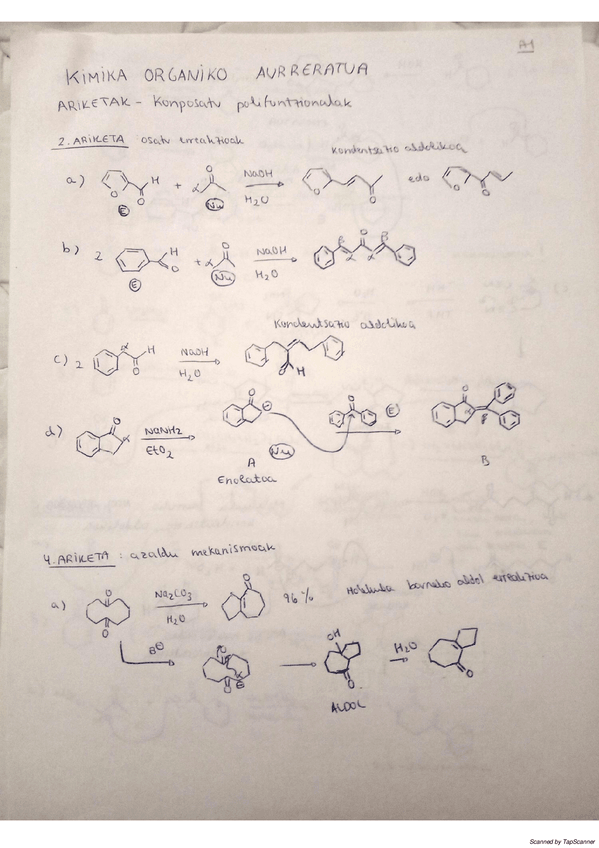 A1
KIMIKA ORGANIKO AURRERATUA
ARIKETAK - Konposatu polifuntzionalak
2. ARIKETA osatu erreakzioak
Kondentsazio aldolikoa
a) O H O E + α O Nu NaOH H2O O O edo O O
b) 2 H O E + α O Nu NaOH H2O β O β α α
Kondentsazio aldolikoa
c) 2 α H O NaOH H2O O H
d) O α NaNH2 EtO2 O ⊖ Nu O E O α β
A B
Enolatoa
4. ARIKETA : azaldu mekanismoak
a) O O Na2CO3 H2O O 96 % Molekula barneko aldol erreakzioa
B⊖ O O OH O H2O O
ALDOL
Scanned by TapScanner